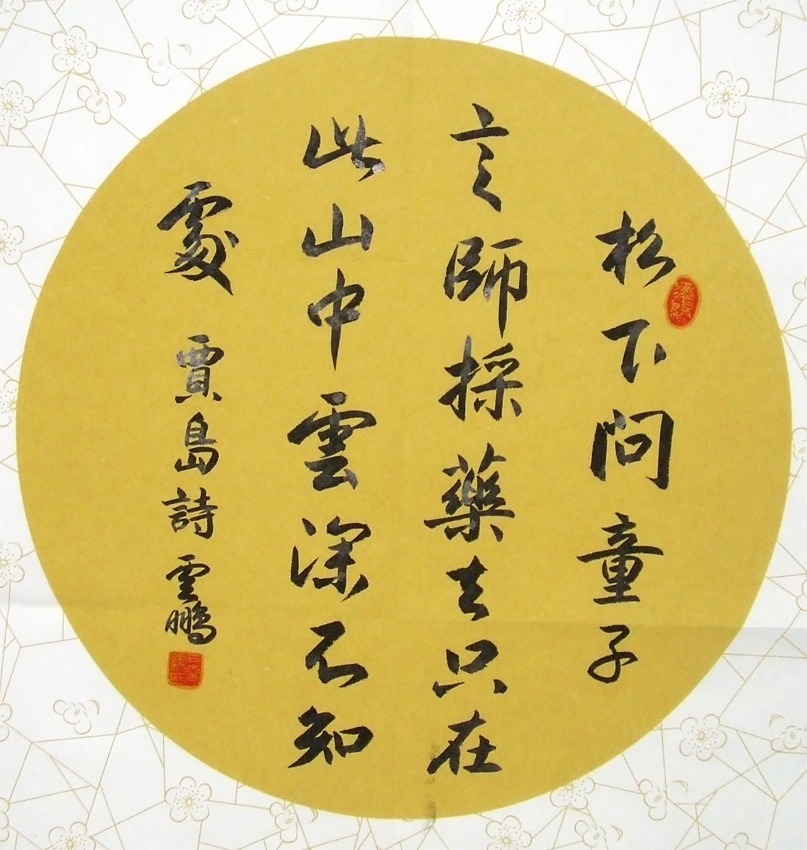 松下问童子
言師採藥去只在
此山中雲深不知
處 賈島詩 雲鵬